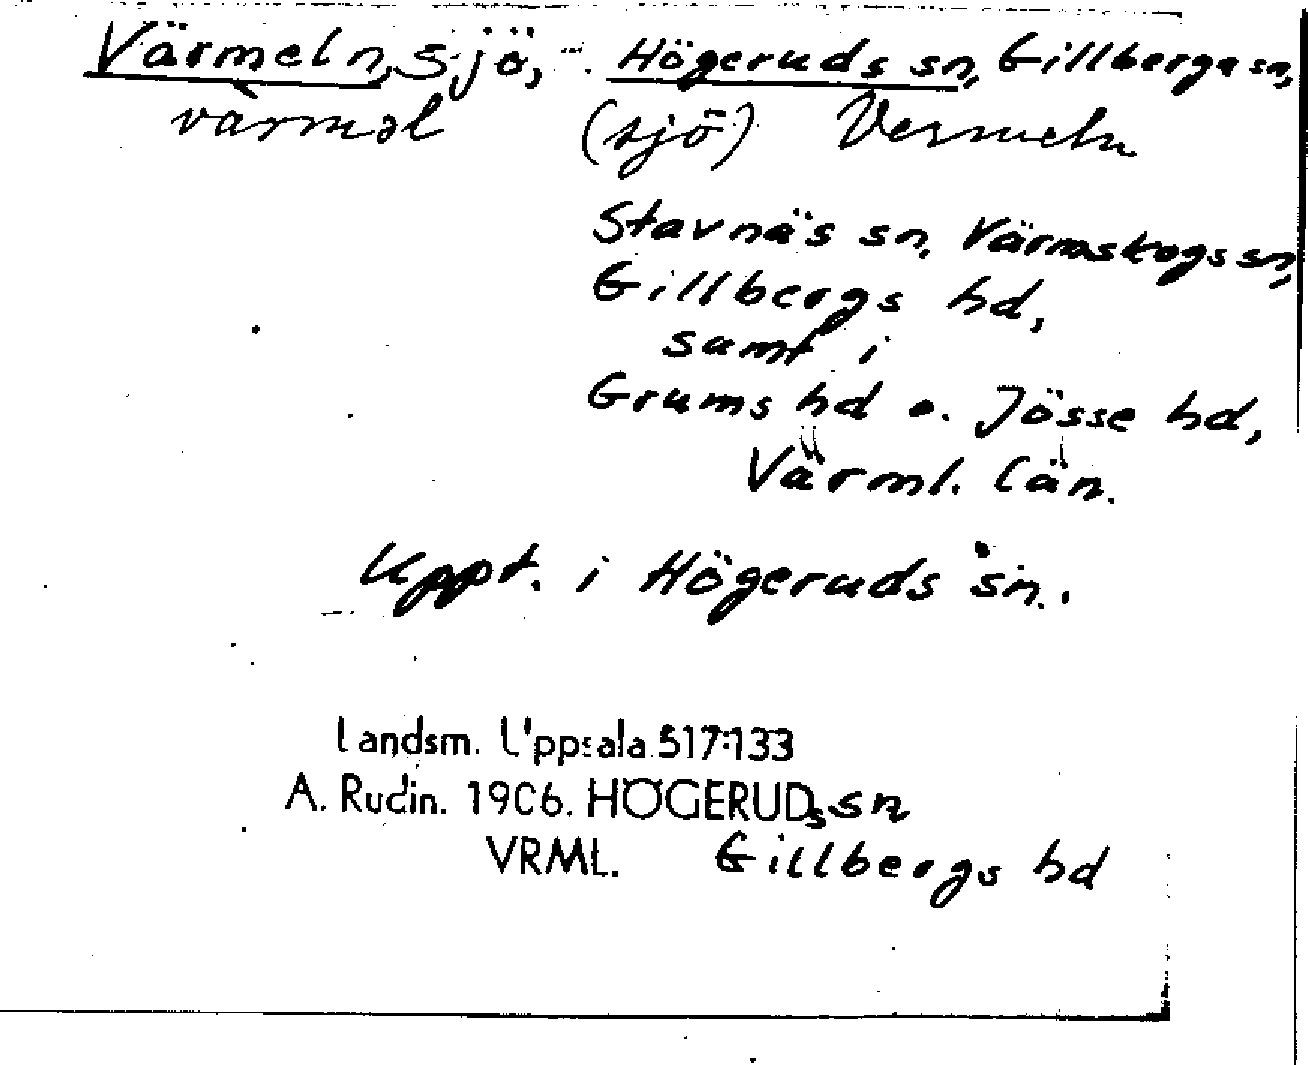 Värmeln, sjö, Högeruds sn, Gillberga sn,
värməl (sjö) Vermeln
Stavnäs sn, Värmskogs sn,
Gillbergs hd,
samt i
Grums hd o. Jösse hd,
Värml. län.
Uppt. i Högeruds sn.
Landsm. Uppsala 517:133
A. Rudin. 1906. HÖGERUDs sn
VRML. Gillbergs hd